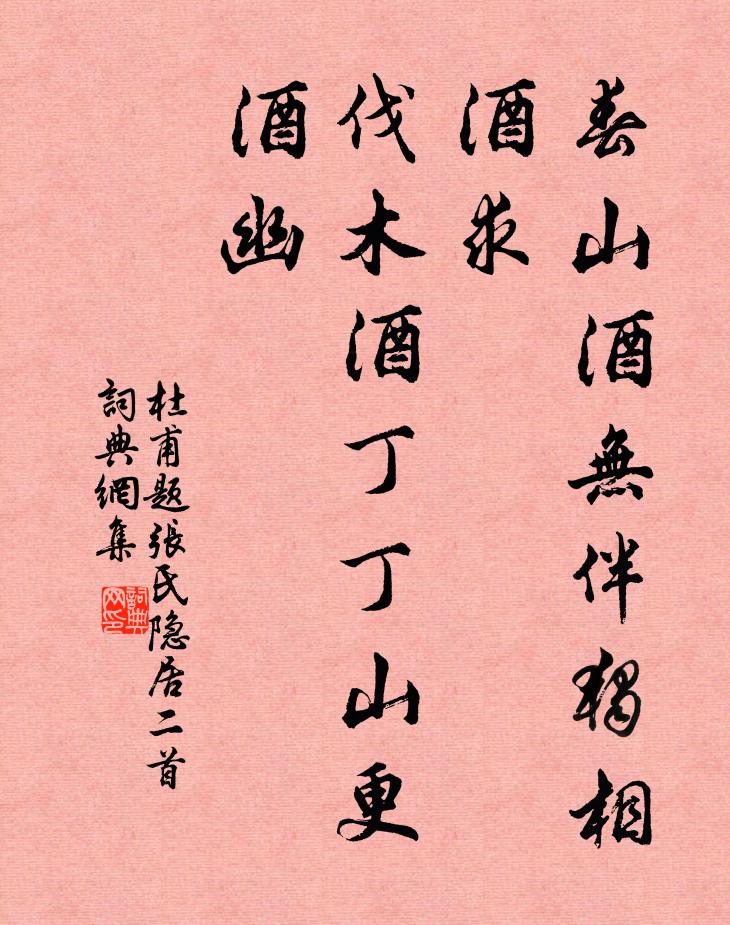 春山酒無伴獨相
酒求
伐木酒丁丁山更
酒幽
杜甫题張氏隐居二首
詞典網集
詞典网印